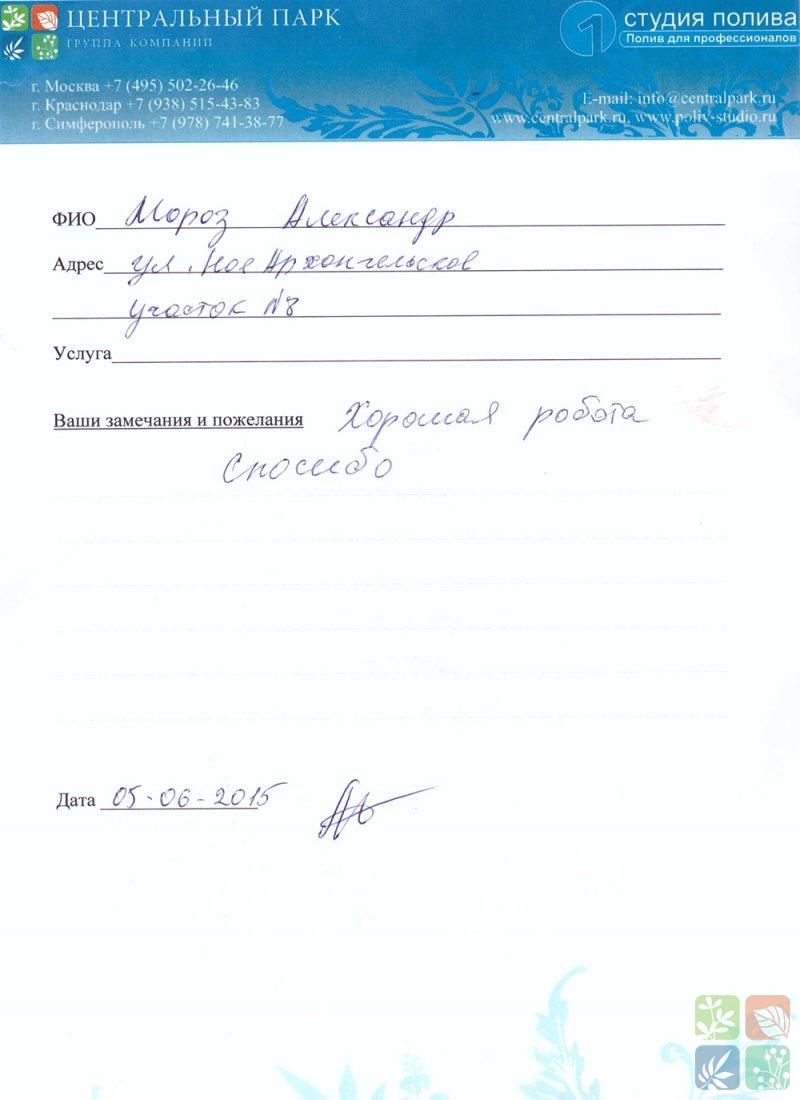 ЦЕНТРАЛЬНЫЙ ПАРК
ГРУППА КОМПАНИЙ
1 студия полива
Полив для профессионалов
г. Москва +7 (495) 502-26-46
г. Краснодар +7 (938) 515-43-83
г. Симферополь +7 (978) 741-38-77
E-mail: info@centralpark.ru
www.centralpark.ru, www.poliv-studio.ru
ФИО Мороз Александр
Адрес ул. Архонгельское
участок N8
Услуга
Ваши замечания и пожелания Хорошая робота
Спосибо
Дата 05-06-2015